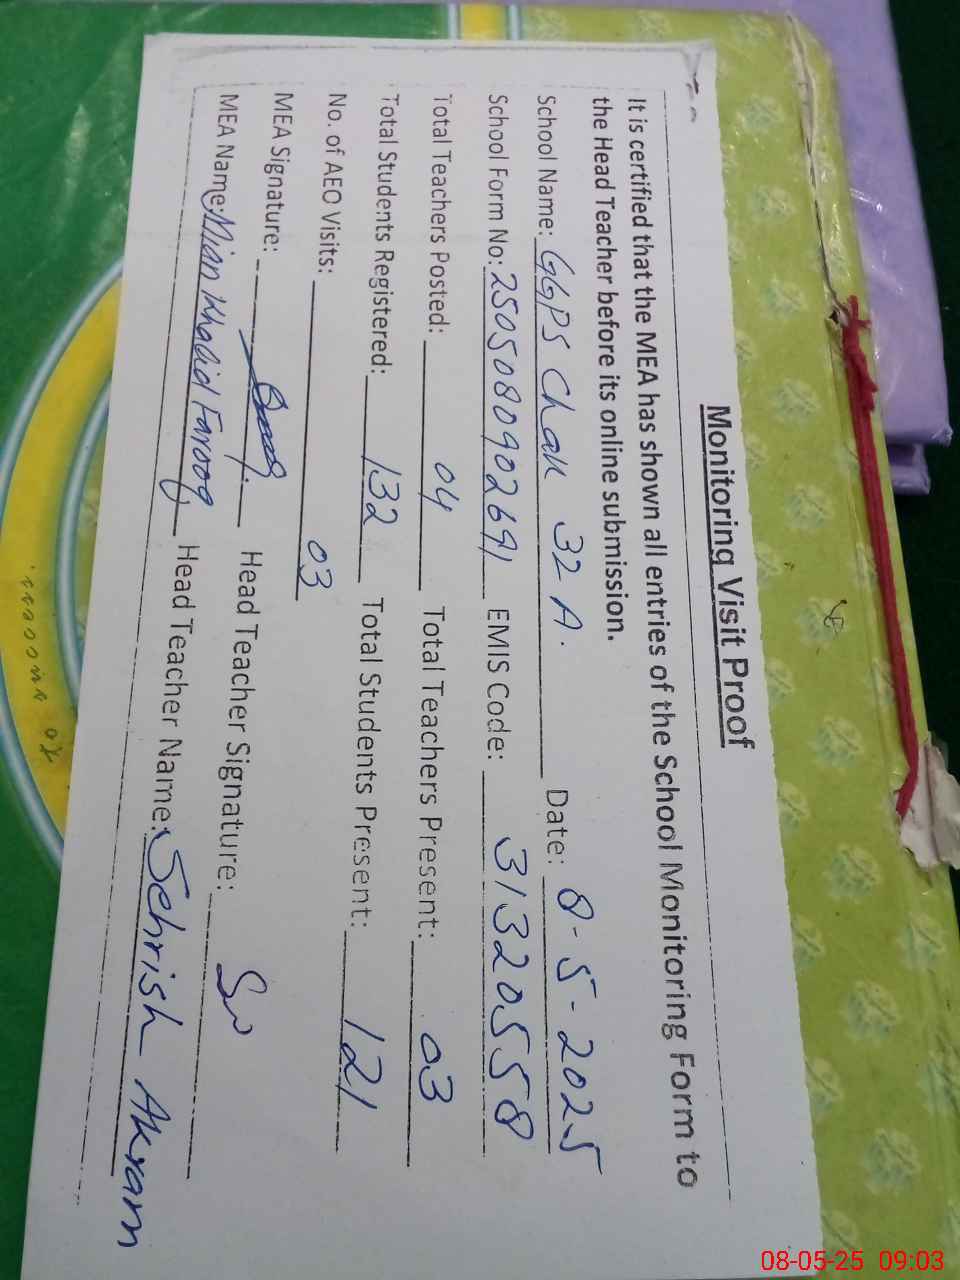 Monitoring Visit Proof
It is certified that the MEA has shown all entries of the School Monitoring Form to
the Head Teacher before its online submission.
School Name: GGPS Chak 32 A. Date: 8-5-2025
School Form No: 2505080902691 EMIS Code: 31320558
Total Teachers Posted: 04 Total Teachers Present: 03
Total Students Registered: 132 Total Students Present: 121
No. of AEO Visits: 03
MEA Signature: Head Teacher Signature:
MEA Name: Mian Khalid Farooq Head Teacher Name: Sehrish Akram
08-05-25 09:03